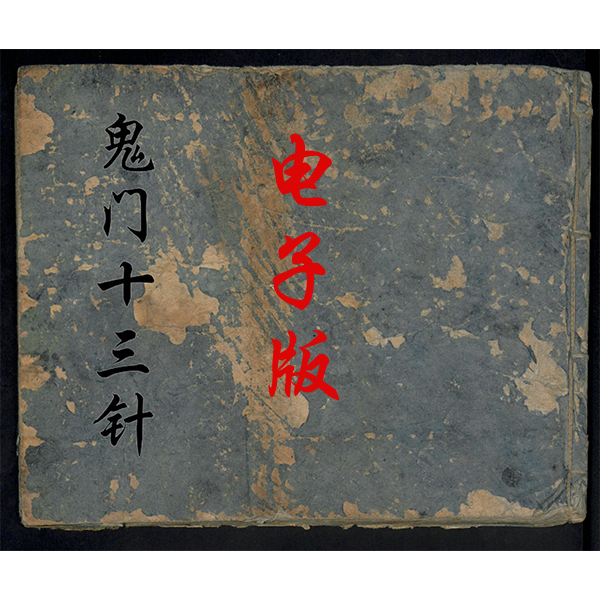 鬼门十三针
电子版